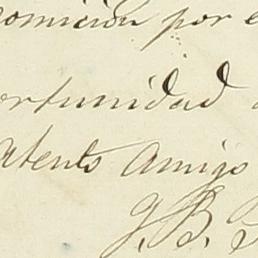 comicion por e
ortunidad
atento Amigo
J. B.